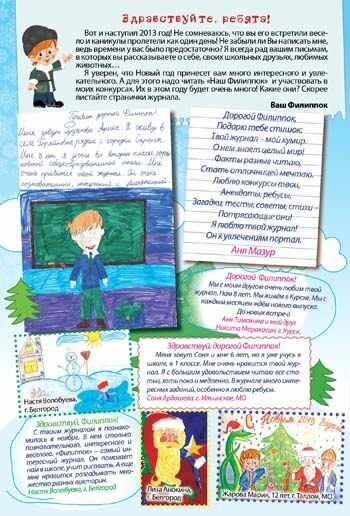 Здравствуйте, ребята!
Вот и наступил 2013 год! Не сомневаюсь, что вы его встретили весе-
ло и каникулы пролетели как один день! Не забыли ли Вы написать мне,
ведь времени у вас было предостаточно? Я всегда рад вашим письмам,
в которых вы рассказываете о себе, своих школьных друзьях, любимых
животных…
Я уверен, что Новый год принесет вам много интересного и увле-
кательного. А для этого надо читать «Наш Филиппок» и участвовать в
моих конкурсах. Их в этом году будет очень много! Какие они? Скорее
листайте странички журнала.
Ваш Филиппок
Привет дорогой Филипок!
Меня зовут
Арина. Я живу в
селе
рядом с городом Саранск.
Мне 8 лет я учусь во втором классе
Мне
очень нравится твой журнал. Он очень
Дорогой Филиппок,
Подарю тебе стишок:
Твой журнал – мой кумир.
О нем знает целый мир!
Факты разные читаю,
Стать отличницей мечтаю.
Люблю конкурсы твои,
Анекдоты, ребусы,
Загадки, тесты, советы, стихи –
Потрясающие они!
Я люблю твой журнал!
Он к увлечениям портал.
Аня Мазур
Дорогой Филиппок!
Мы с моим другом очень любим твой
журнал. Нам 8 лет. Мы живём в Курске. Мы с
каждым месяцем ждём нового выпуска.
До новых встреч!
Аня Тимохина и мой друг
Никита Морокасин, г. Курск
Здравствуй, дорогой Филиппок!
Меня зовут Соня и мне 6 лет, но я уже учусь в
школе, в 1 классе. Мне очень нравится твой жур-
нал. Я с большим удовольствием читаю все ста-
тьи, хоть пока и медленно. В журнале много инте-
ресных заданий, особенно я люблю ребусы.
Соня Ардашева, с. Ильинское, МО
Настя Волобуева,
г. Белгород
Здравствуй, Филиппок!
С твоим журналом я познако-
милась в ноябре. В нем столько
познавательного, интересного и
веселого. «Филиппок» – самый ин-
тересный журнал. Он помогает
нам в школе, учит рисовать. А еще
мне нравится разгадывать мно-
жество разных викторин.
Настя Волобуева, г. Белгород
Лиза Анохина,
г. Белгород
С Новым 2013 Годом
Жарова Мария, 12 лет, г. Талдом, МО